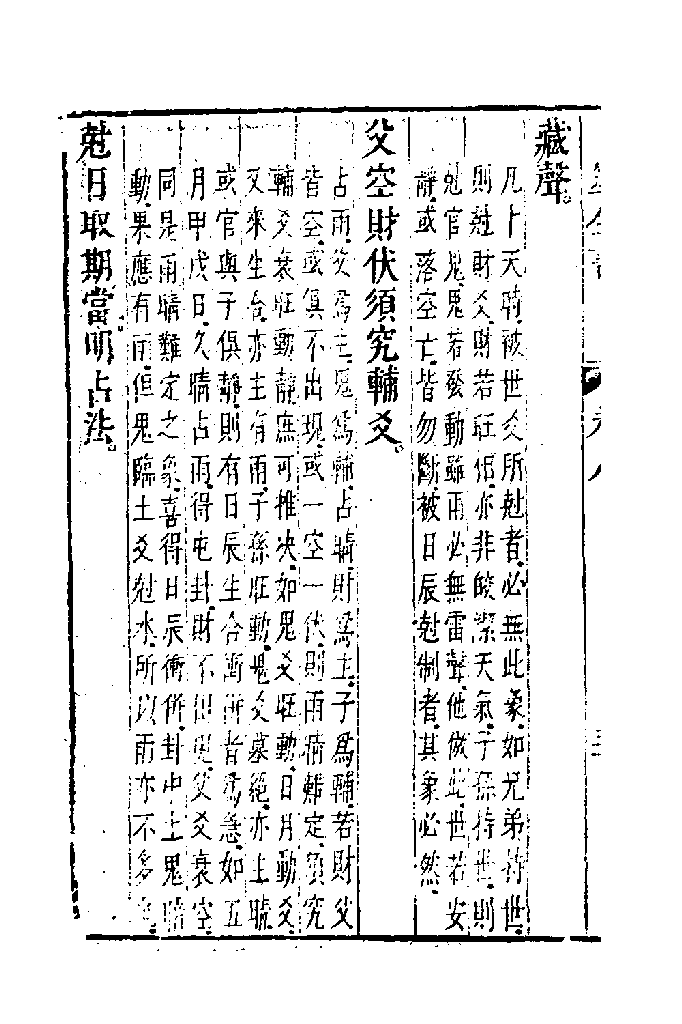 藏聲。
凡卜天時，被世爻所尅者，必無此象，如兄弟持世，
則尅財爻，財若旺相，亦非皎潔天氣，子孫持世，則
尅官鬼，鬼若發動，雖雨必無雷聲，他倣此，世若安
靜，或落空亡，皆勿斷，被日辰尅制者，其象必然。
父空財伏須究輔爻。
占雨，父爲主，鬼爲輔，占晴，財爲主，子爲輔，若財父
皆空，或俱不出現，或一空一伏，則雨晴難定，須究
輔爻衰旺動靜，庶可推决，如鬼爻旺動，日月動爻，
又來生合，亦主有雨，子孫旺動，鬼爻墓絶，亦主晴，
或官與子俱靜，則有日辰生合衝併者爲急，如五
月甲戌日，久晴占雨，得屯卦，財不出現，父爻衰空，
同是雨晴難定之象，喜得日辰衝併，卦中土鬼暗
動，果應有雨，但鬼臨土爻尅水，所以雨亦不多
尅日取期當明占法。